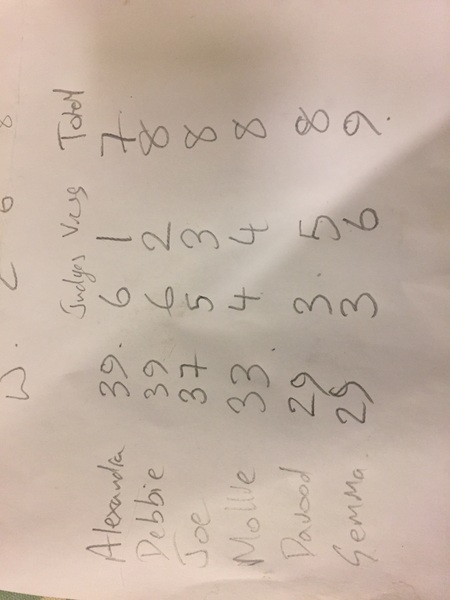 Judges Total
Alexandra 39. 6 1 7
Debbie 39 6 2 8
Joe 37 5 3 8
Mollie 33. 4 4 8
Davood 29 3. 5 8
Gemma. 29 3 6 9.